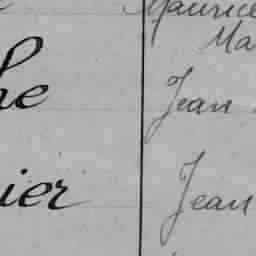 Maurice
Ma
he
Jean
ier
Jean